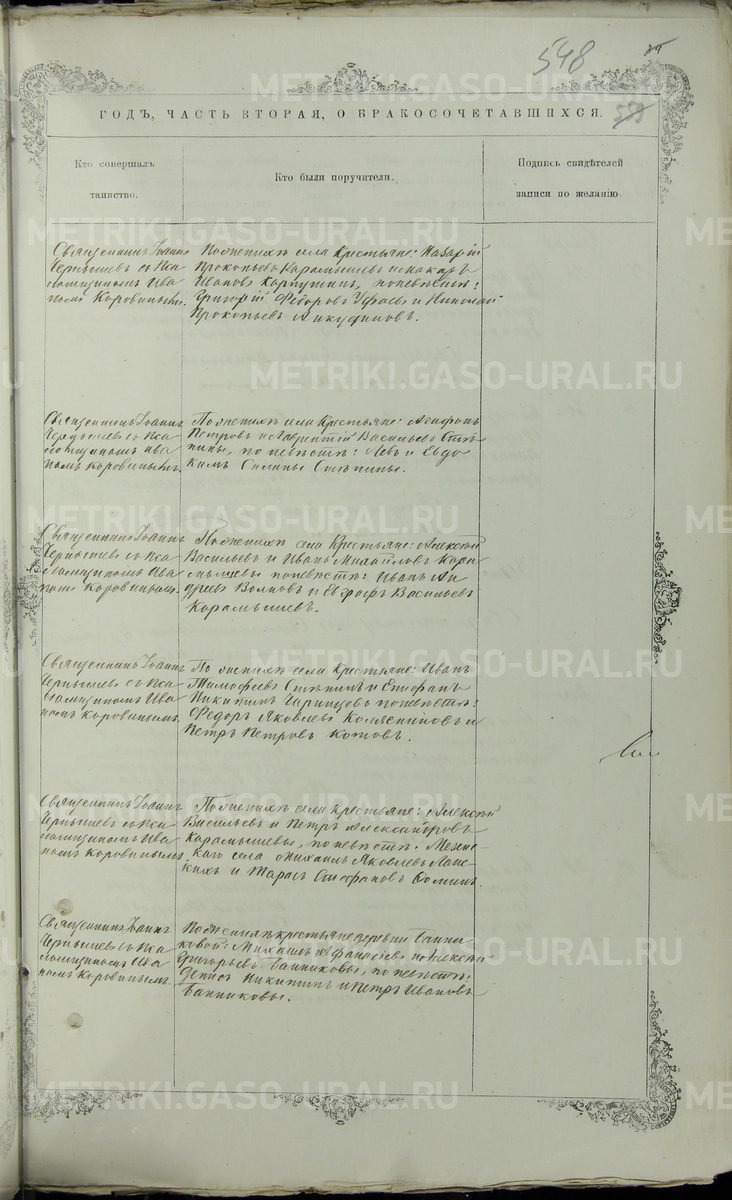 548
559
ГОДЪ, ЧАСТЬ ВТОРАЯ, О БРАКОСОЧЕТАВШИХСЯ.
Кто совершалъ
таинство.
Кто были поручители.
Подпись свидѣтелей
записи по желанію.
Священникъ Іоаннъ
Чернышевъ съ пса-
ломщикомъ Ива-
номъ Коровинымъ.
По женихѣ села крестьяне: Назарій
Прокопьевъ Карамышевъ и Макаръ
Ивановъ Карпушинъ, по невѣстѣ:
Григорій Ѳедоровъ и Николай
Прокопьевъ Аникудиновъ.
Священникъ Іоаннъ
Чернышевъ съ пса-
ломщикомъ Ива-
номъ Коровинымъ.
По женихѣ села крестьяне: Агафонъ
Петровъ и Лаврентій Васильевъ Стѣ-
пины, по невѣстѣ: Левъ и Евдо-
кимъ Силины Стѣпины.
Священникъ Іоаннъ
Чернышевъ съ пса-
ломщикомъ Ива-
номъ Коровинымъ.
По женихѣ села крестьяне: Алексѣй
Васильевъ и Иванъ Михайловъ Кара-
мышевы по невѣстѣ: Иванъ Ан-
дреевъ Волковъ и Васильевъ
Карамышевъ.
Священникъ Іоаннъ
Чернышевъ съ пса-
ломщикомъ Ива-
номъ Коровинымъ.
По женихѣ села крестьяне: Иванъ
Тимофеевъ Стѣпинъ и Епифанъ
Никитинъ по невѣстѣ:
Ѳедоръ Яковлевъ и
Петръ Петровъ Котовъ.
Священникъ Іоаннъ
Чернышевъ съ пса-
ломщикомъ Ива-
номъ Коровинымъ.
По женихѣ села крестьяне: Алексѣй
Васильевъ и Петръ Александровъ
Карамышевы, по невѣстѣ:
села Михаилъ Яковлевъ
и Тарасъ Стефановъ Ѳоминъ.
Священникъ Іоаннъ
Чернышевъ съ пса-
ломщикомъ Ива-
номъ Коровинымъ.
По женихѣ крестьяне деревни Банни-
ковой: Михаилъ Афанасьевъ и Алексѣй
Григорьевъ Банниковы, по невѣстѣ:
Денисъ Никитинъ и Петръ Ивановъ
Банниковы.
METRIKI.GASO-URAL.RU